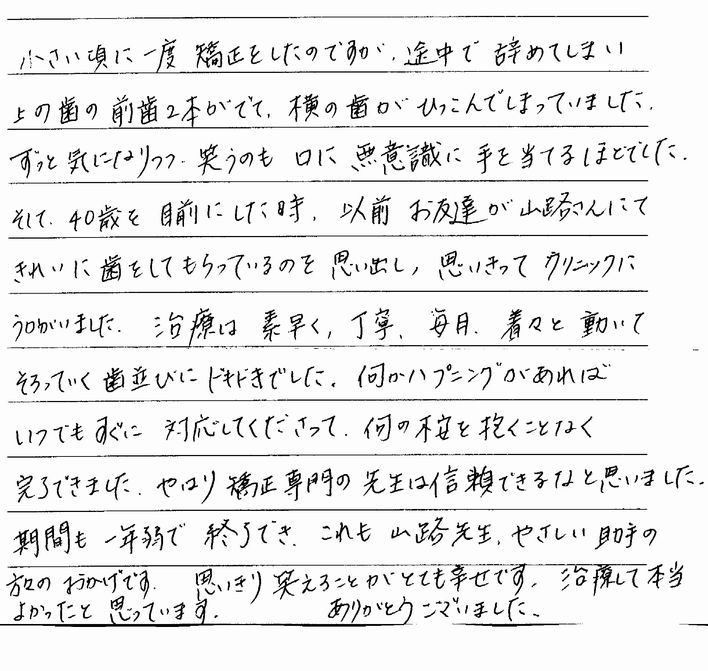 小さい頃に一度矯正をしたのですが、途中で辞めてしまい
上の歯の前歯2本がでて、横の歯がひっこんでしまっていました。
ずっと気になりつつ、笑うのも口に無意識に手を当てるほどでした。
そして、40歳を目前にした時、以前お友達が山路さんにて
きれいに歯をしてもらっているのを思い出し、思いきってクリニックに
うかがいました。治療は素早く、丁寧、毎月、着々と動いて
そろっていく歯並びにドキドキでした。何かハプニングがあれば
いつでもすぐに対応してくださって、何の不安を抱くことなく
完了できました。やはり矯正専門の先生は信頼できるなと思いました。
期間も一年弱で終了でき、これも山路先生、やさしい助手の
方々のおかげです。思いきり笑えることがとても幸せです。治療して本当
よかったと思っています。ありがとうございました。